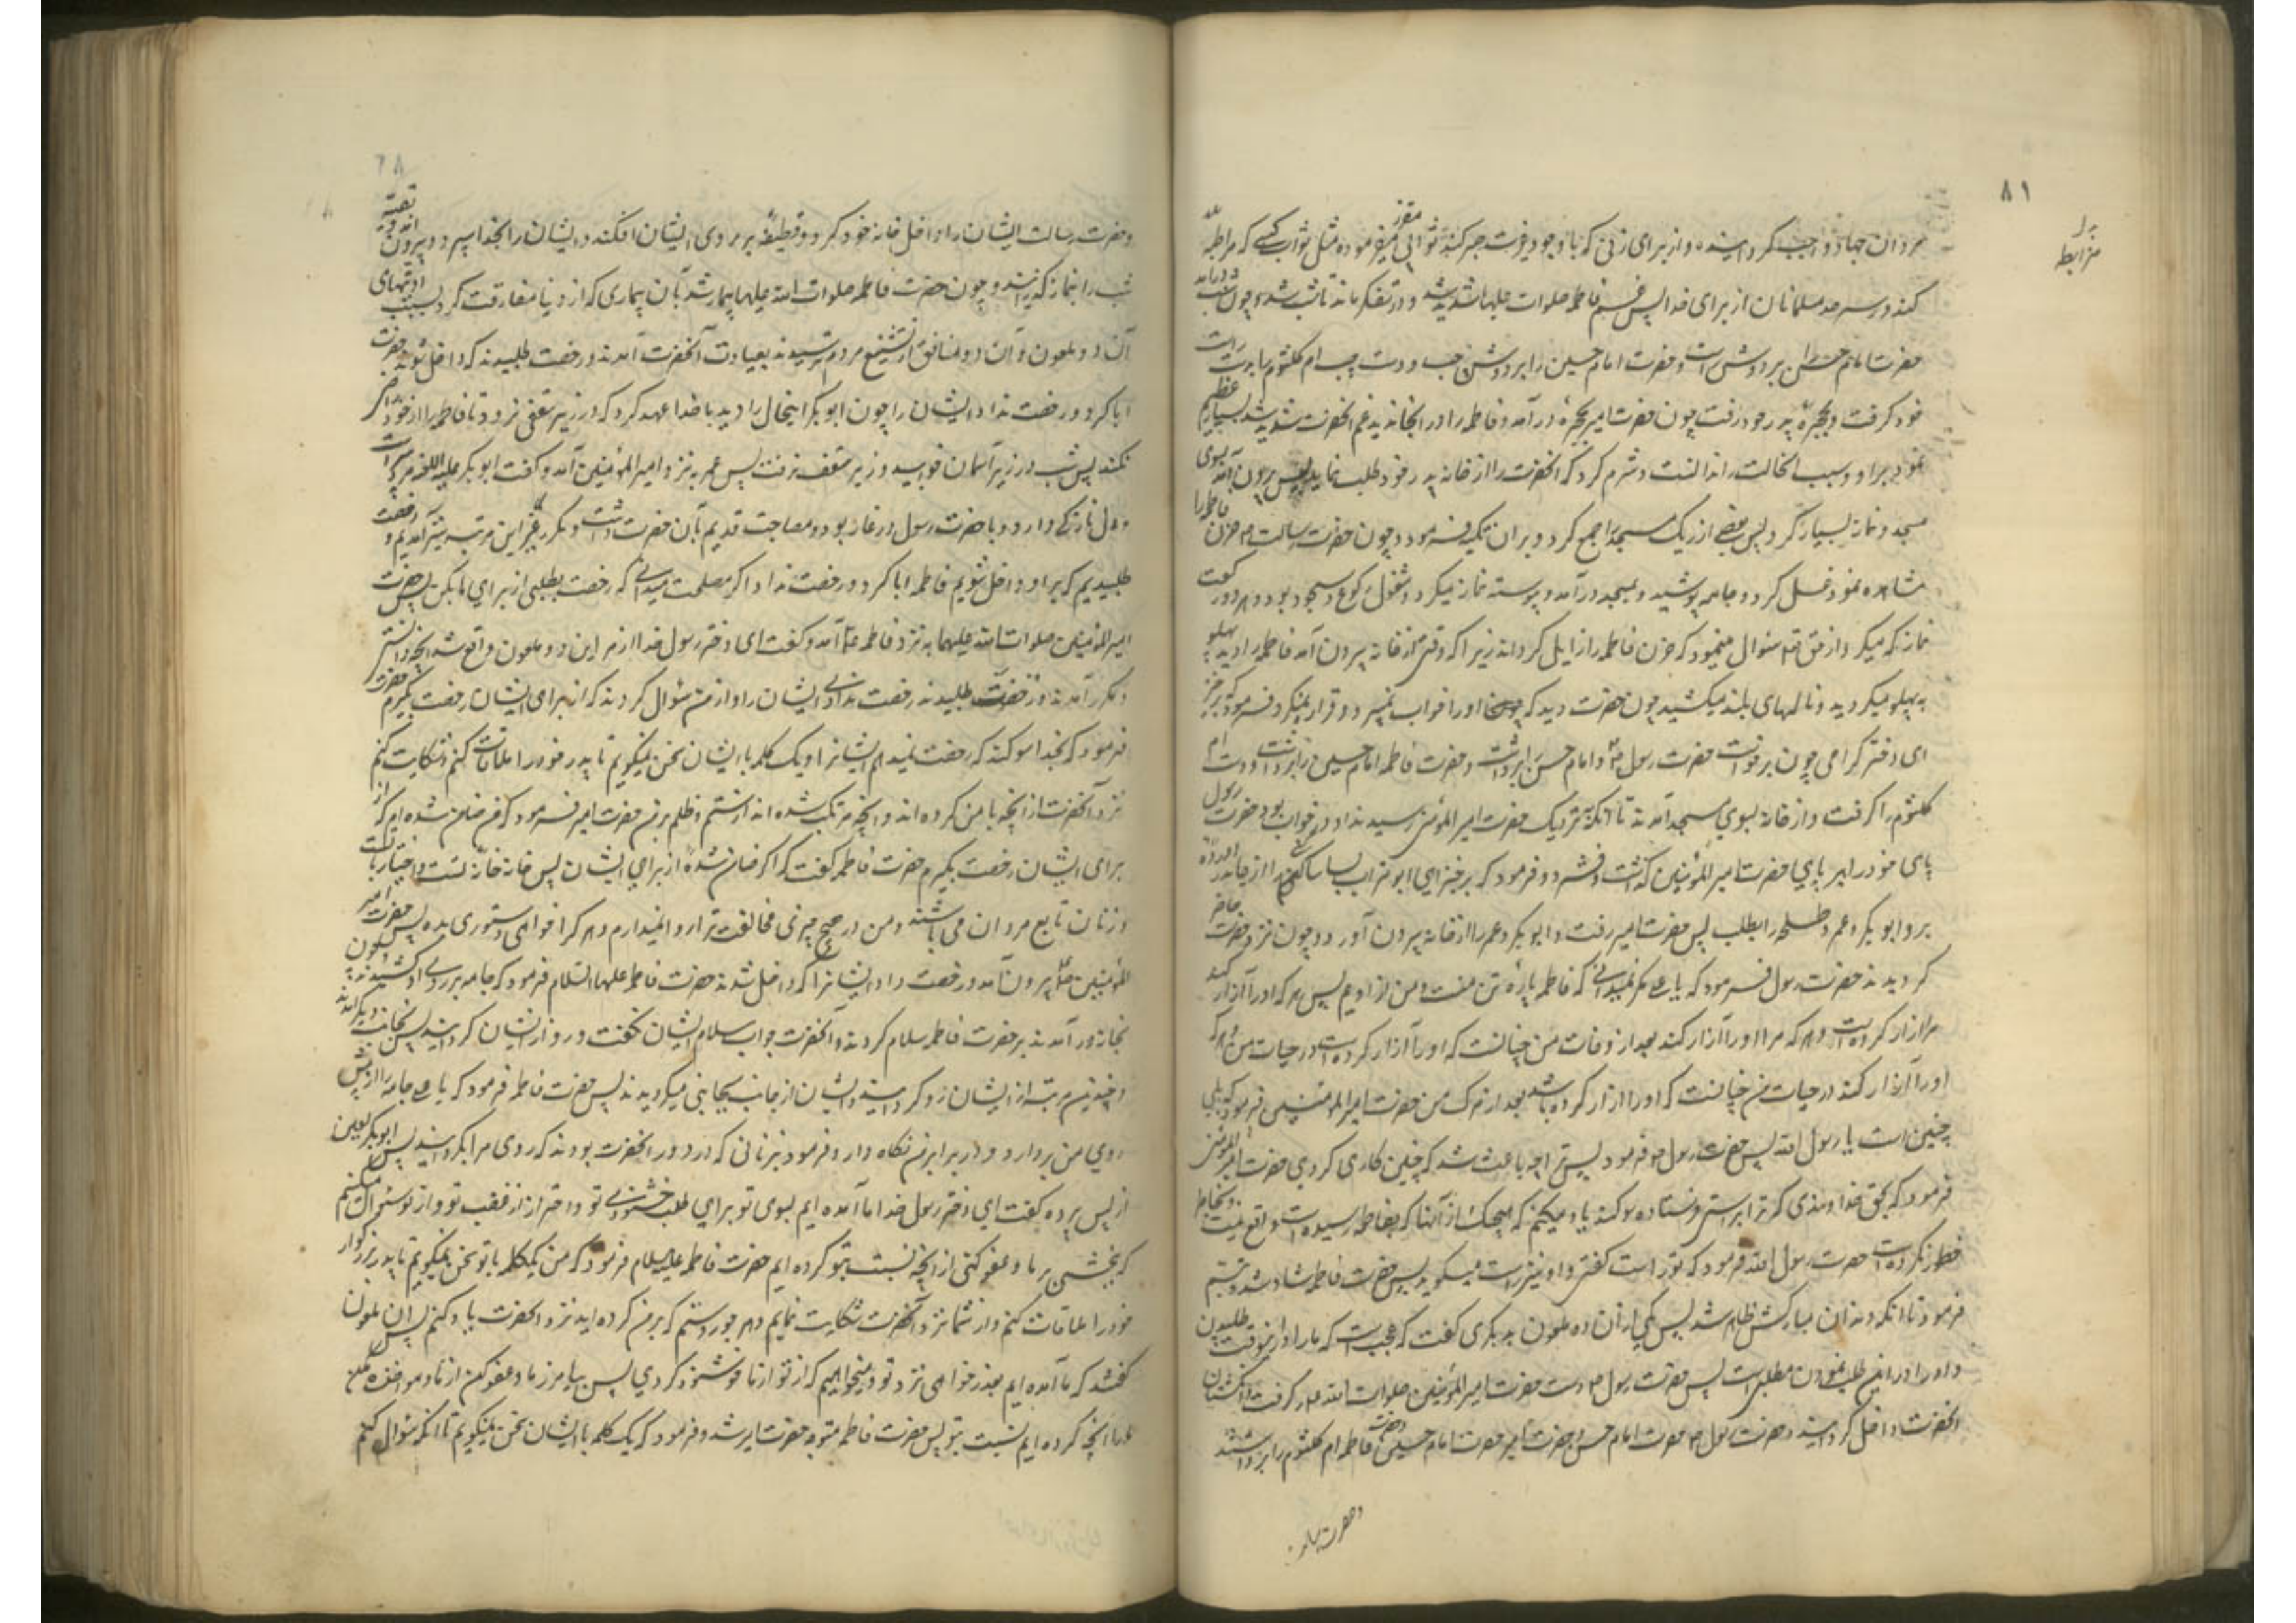 ۸۱
بدل
مرابطه
مردان جهاد واجب گردانیده و از برای زنی که با وجود غیرت صبر کند ثوابی مقرر فرموده مثل ثواب کسی که مرابطه
کند در سرحد مسلمانان از برای خدا پس غم فاطمه صلوات علیها شدید شد و در تفکر ماند تا شب شد و چون شب درآمد
حضرت امام حسن بر دوش راست و حضرت امام حسین را بر دوش چپ و دست چپ ام کلثوم را بدست راست
خود گرفت و بحجره پدر خود رفت چون حضرت امیر بحجره درآمد و فاطمه را در انجا ندید غم انحضرت شدید شد و بسیار عظیم
نمود بر او و سبب انحالت را ندانست و شرم کرد که انحضرت را از خانه پدر خود طلب نماید پس بیرون آمد بسوی
مسجد و نماز بسیار کرد پس بعضی از ریک مسجد را جمع کرد و بر ان تکیه فرمود و چون حضرت رسالت ص حزن فاطمه را
مشاهده نمود غسل کرد و جامه پوشید و بمسجد درآمد و پیوسته نماز میکرد و مشغول رکوع و سجود بود و هر دو رکعت
نماز که میکرد از حق تع سئوال مینمود که حزن فاطمه را زایل گرداند زیرا که وقتی از خانه بیرون آمد فاطمه را دید پهلو
به پهلو میگردید و نالهای بلند میکشید چون حضرت دید که او را خواب نمیبرد و قرار نمیگیرد فرمود که برخیز
ای دختر گرامی چون برخواست حضرت رسول ص امام حسن را برداشت و حضرت فاطمه امام حسین را برداشت و دست ام
کلثوم را گرفت و از خانه بسوی مسجد آمدند تا آنکه نزدیک حضرت امیر المؤمنین رسیدند او در خواب بود حضرت رسول
پای خود را بر پای حضرت امیر المؤمنین گذاشت و فشرد و فرمود که برخیز ای ابو تراب بسا ساکنی را از جا بدر آورده
برو ابو بکر و عمر و طلحه را بطلب پس حضرت امیر رفت و ابو بکر و عمر را از خانه بیرون آورد و چون نزد حضرت حاضر
گردیدند حضرت رسول فرمود که یا علی مگر نمیدانی که فاطمه پاره تن منست و من از اویم پس هر که او را آزار کند
مرا ازار کرده است و هر که مرا او را آزار کند بعد از وفات من چنانست که او را آزار کرده است در حیات من و هر که
او را آزار کند در حیات من چنانست که او را ازار کرده باشد بعد از مرگ من حضرت امیر المؤمنین فرمود که بلی
چنین است یا رسول الله پس حضرت رسول ص فرمود پس ترا چه باعث شد که چنین کاری کردی حضرت امیر المؤمنین
فرمود که بحق خداوندی که ترا براستی فرستاده سوکند یاد میکنم که هیچیک از آنها که بفاطمه رسیده است واقع نیست و بخاطر
خطور نکرده است حضرت رسول الله فرمود که تو راست گفتی و او نیز راست میگوید پس حضرت فاطمه شاد شد و تبسم
فرمود تا آنکه دندان مبارکش ظاهر شد پس یکی از آن دو ملعون به دیگری گفت که عجب است که ما را در اینوقت طلبیدن
و او را در این طلب نمودن مطلبی است پس حضرت رسول ص دست حضرت امیر المؤمنین صلوات الله علیه گرفت و انگشتان
انحضرت داخل گردانید و حضرت رسول ص حضرت امام حسن و حضرت امیر حضرت امام حسین و حضرت فاطمه ام کلثوم را برداشتند
و حضرت رسالت
و حضرت رسالت ایشان را داخل خانه خود کرد و قطیفه بر روی ایشان افکند و ایشان را بخدا سپرد و بیرون آمد و بقیه
شب را بنماز گذرانید و چون حضرت فاطمه صلوات الله علیها بیمار شد بآن بیماری که از دنیا مفارقت کرد بسبب اذیتهای
آن دو ملعون و آن دو منافق از تشنیع مردم ترسیدند بعیادت آنحضرت آمدند و رخصت طلبیدند که داخل شوند حضرت
ابا کرد و رخصت نداد ایشان را چون ابو بکر اینحال را دید با خدا عهد کرد که در زیر سقفی نرود تا فاطمه را از خود راضی
نکند پس شب در زیر آسمان خوابید و زیر سقف نرفت پس عمر به نزد امیر المؤمنین آمد و گفت ابو بکر علیه اللعنه مرد پیریست
و دل نازکی دارد و با حضرت رسول در غار بوده و مصاحبت قدیم بآن حضرت داشت و مکرر بغیر این مرتبه نیز آمدیم و رخصت
طلبیدیم که بر او داخل شویم فاطمه ابا کرد و رخصت نداد اگر مصلحت میدانی که رخصت بطلبی از برای ما بکن پس حضرت
امیر المؤمنین صلوات الله علیهما به نزد فاطمه ع آمد و گفت ای دختر رسول خدا از امر این دو ملعون واقع شد آنچه دانستی
و مکرر آمدند و رخصت طلبیدند رخصت ندادی ایشان را و از من سؤال کردند که از برای ایشان رخصت بگیرم حضرت
فرمود که بخدا سوکند که رخصت نمیدهم ایشانرا و یک کلمه با ایشان سخن نمیگویم تا پدر خود را ملاقات کنم و شکایت کنم
نزد آنحضرت از آنچه با من کرده اند و آنچه مرتکب شده اند از ستم و ظلم بر من حضرت امیر فرمود که من ضامن شده ام که از
برای ایشان رخصت بگیرم حضرت فاطمه گفت که اگر ضامن شده از برای ایشان پس خانه خانه تست و اختیار با تست
و زنان تابع مردان می باشند و من در هیچ چیزی مخالفت ترا روا نمیدارم و هر که را خواهی دستوری بده پس حضرت امیر
المؤمنین ع بیرون آمد و رخصت داد ایشانرا که داخل شدند حضرت فاطمه علیها السلام فرمود که جامه بر روی او کشیدند چون
بخانه درآمدند بر حضرت فاطمه سلام کردند و آنحضرت جواب سلام ایشان نگفت و رو از ایشان گردانید پس بجانب دیگر آمدند
و چندین مرتبه از ایشان رو گردانید و ایشان از جانب بجانبی میگردیدند پس حضرت فاطمه فرمود که یا علی جامه را از پیش
روی من بردار و در برابر من نگاه دار و فرمود بزنانی که در دور انحضرت بودند که روی مرا بگردانید پس ابو بکر لعین
از پس پرده گفت ای دختر رسول خدا ما آمده ایم بسوی تو برای طلب خشنودی تو و احتراز از غضب تو و از تو سئوال میکنیم
که بخشی بر ما و عفو کنی از آنچه نسبت بتو کرده ایم حضرت فاطمه علیه السلام فرمود که من یکلمه با تو سخن نمیگویم تا پدر بزرگوار
خود را ملاقات کنم و از شما نزد آنحضرت شکایت نمایم و هر جور و ستم که بر من کرده اید نزد آنحضرت یاد کنم پس ان ملعون
گفتند که ما آمده ایم بعذر خواهی نزد تو و میخواهیم که از تو از ما خوشنود گردی پس بیامرز ما و عفو کن از ما و مواخذه مکن
ما را بآنچه کرده ایم نسبت بتو پس حضرت فاطمه متوجه حضرت امیر شد و فرمود که یک کلمه با ایشان سخن نمیگویم تا آنکه سؤال کنم